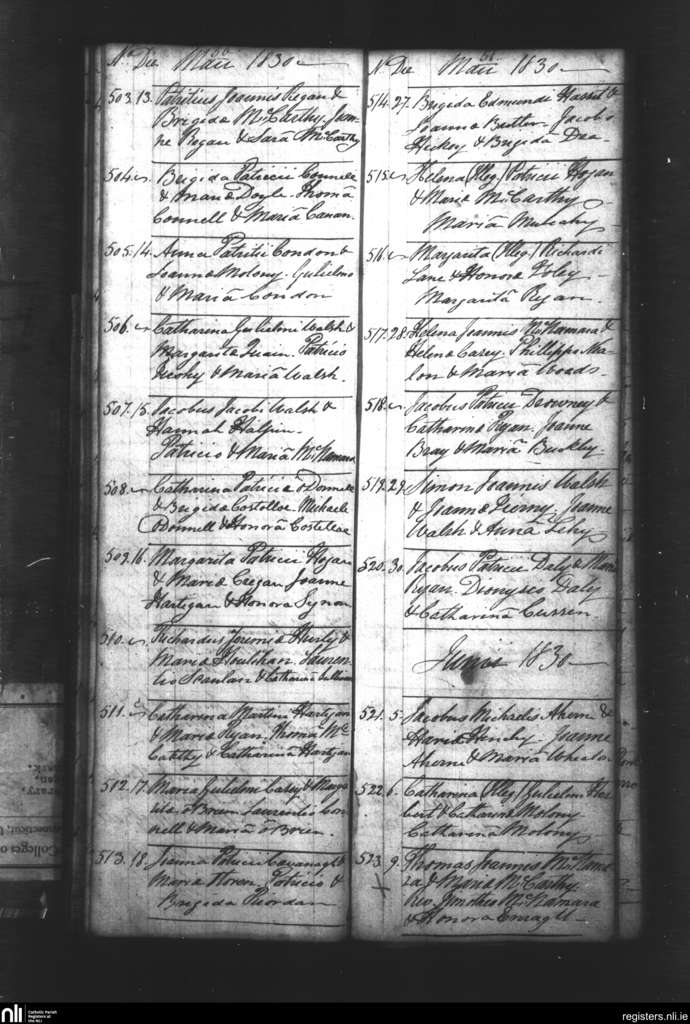 No Die Maii 1830
503. 13. Patritius Joannis Regan &
Brigida McCarthy. Jam-
Regan & Sarâ McCarthy
504. Brigida Patricii Connell
& Maria Doyle. Thomâ
Connell & Mariâ Canan.
505. 14. Anna Patritii Condon &
Joanna Molony. Gulielmo
& Mariâ Condon
506. Catharina Gulielmi Walsh &
Margarita Quain. Patricio
& Mariâ Walsh.
507. 15. Jacobus Jacobi Walsh &
Hannah Halpin.
Patricio & Mariâ McNamara
508. Catharina Patricii O'Donnell
& Brigida Costelloe. Michaele
Donnell & Honorâ Costelloe
509. 16. Margarita Patricii Hogan
& Maria Cregan Joanne
Hartigan & Honora Synon
510. Hurly &
Maria Houlihan. Lauren-
tio Scanlan & Catharina Sullivan
511. Catherina Martini Hartgan
& Maria Ryan. Thoma Mc
Carthy & Catharina Hartgan
512. 17. Maria Gulielmi Casey & Marga
rita O'Brien Laurentio Con
nell & Mariâ O'Brien.
513. 18. Joanna Patricii Cavanagh &
Maria Patricio &
Brigida Riordan
No Die Maii 1830
514. 27. Brigida Edmundi &
Joanna Butler. Jacobo
Hickey & Brigida Dea
515. Helena (Illeg.) Patricii Hogan
& Maria McCarthy
Mariâ Mulcahy
516. Margarita (Illeg.) Richardi
Lane & Honora Foley
Margaritâ Ryan.
517. 28. Helena Joannis McNamara &
Helena Carey. Phillippo Nea-
lon & Maria Woods.
518. Jacobus Patricii Drowney &
Catharina Ryan. Joanne
Bray & Mariâ Buckley.
519. 29. Simon Joannis Walsh
& Joanna Joanne
Walsh & Anna Lehy
520. 30. Jacobus Patricii Daly & Maria
Ryan. Dionysio Daly
& Catharinâ Curren.
Junii 1830
521. 5. Jacobus Michaelis Aherne &
Maria Joanne
Aherne & Mariâ Wheeler
522. 6. Catharina (Illeg.) Gulielmi Her
bert & Catharina Molony
Catharina Molony
523. 9. Thomas Joannis McNama
ra & Maria McCarthy
Rev. McNamara
& Honora Enright
nli
Catholic Parish
Registers at
the NLI
registers.nli.ie